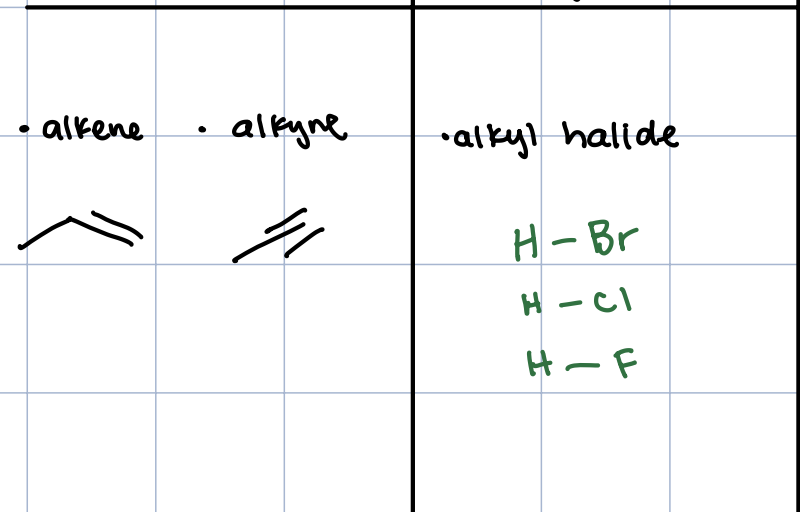 • alkene • alkyne
• alkyl halide
H – Br
H – Cl
H – F